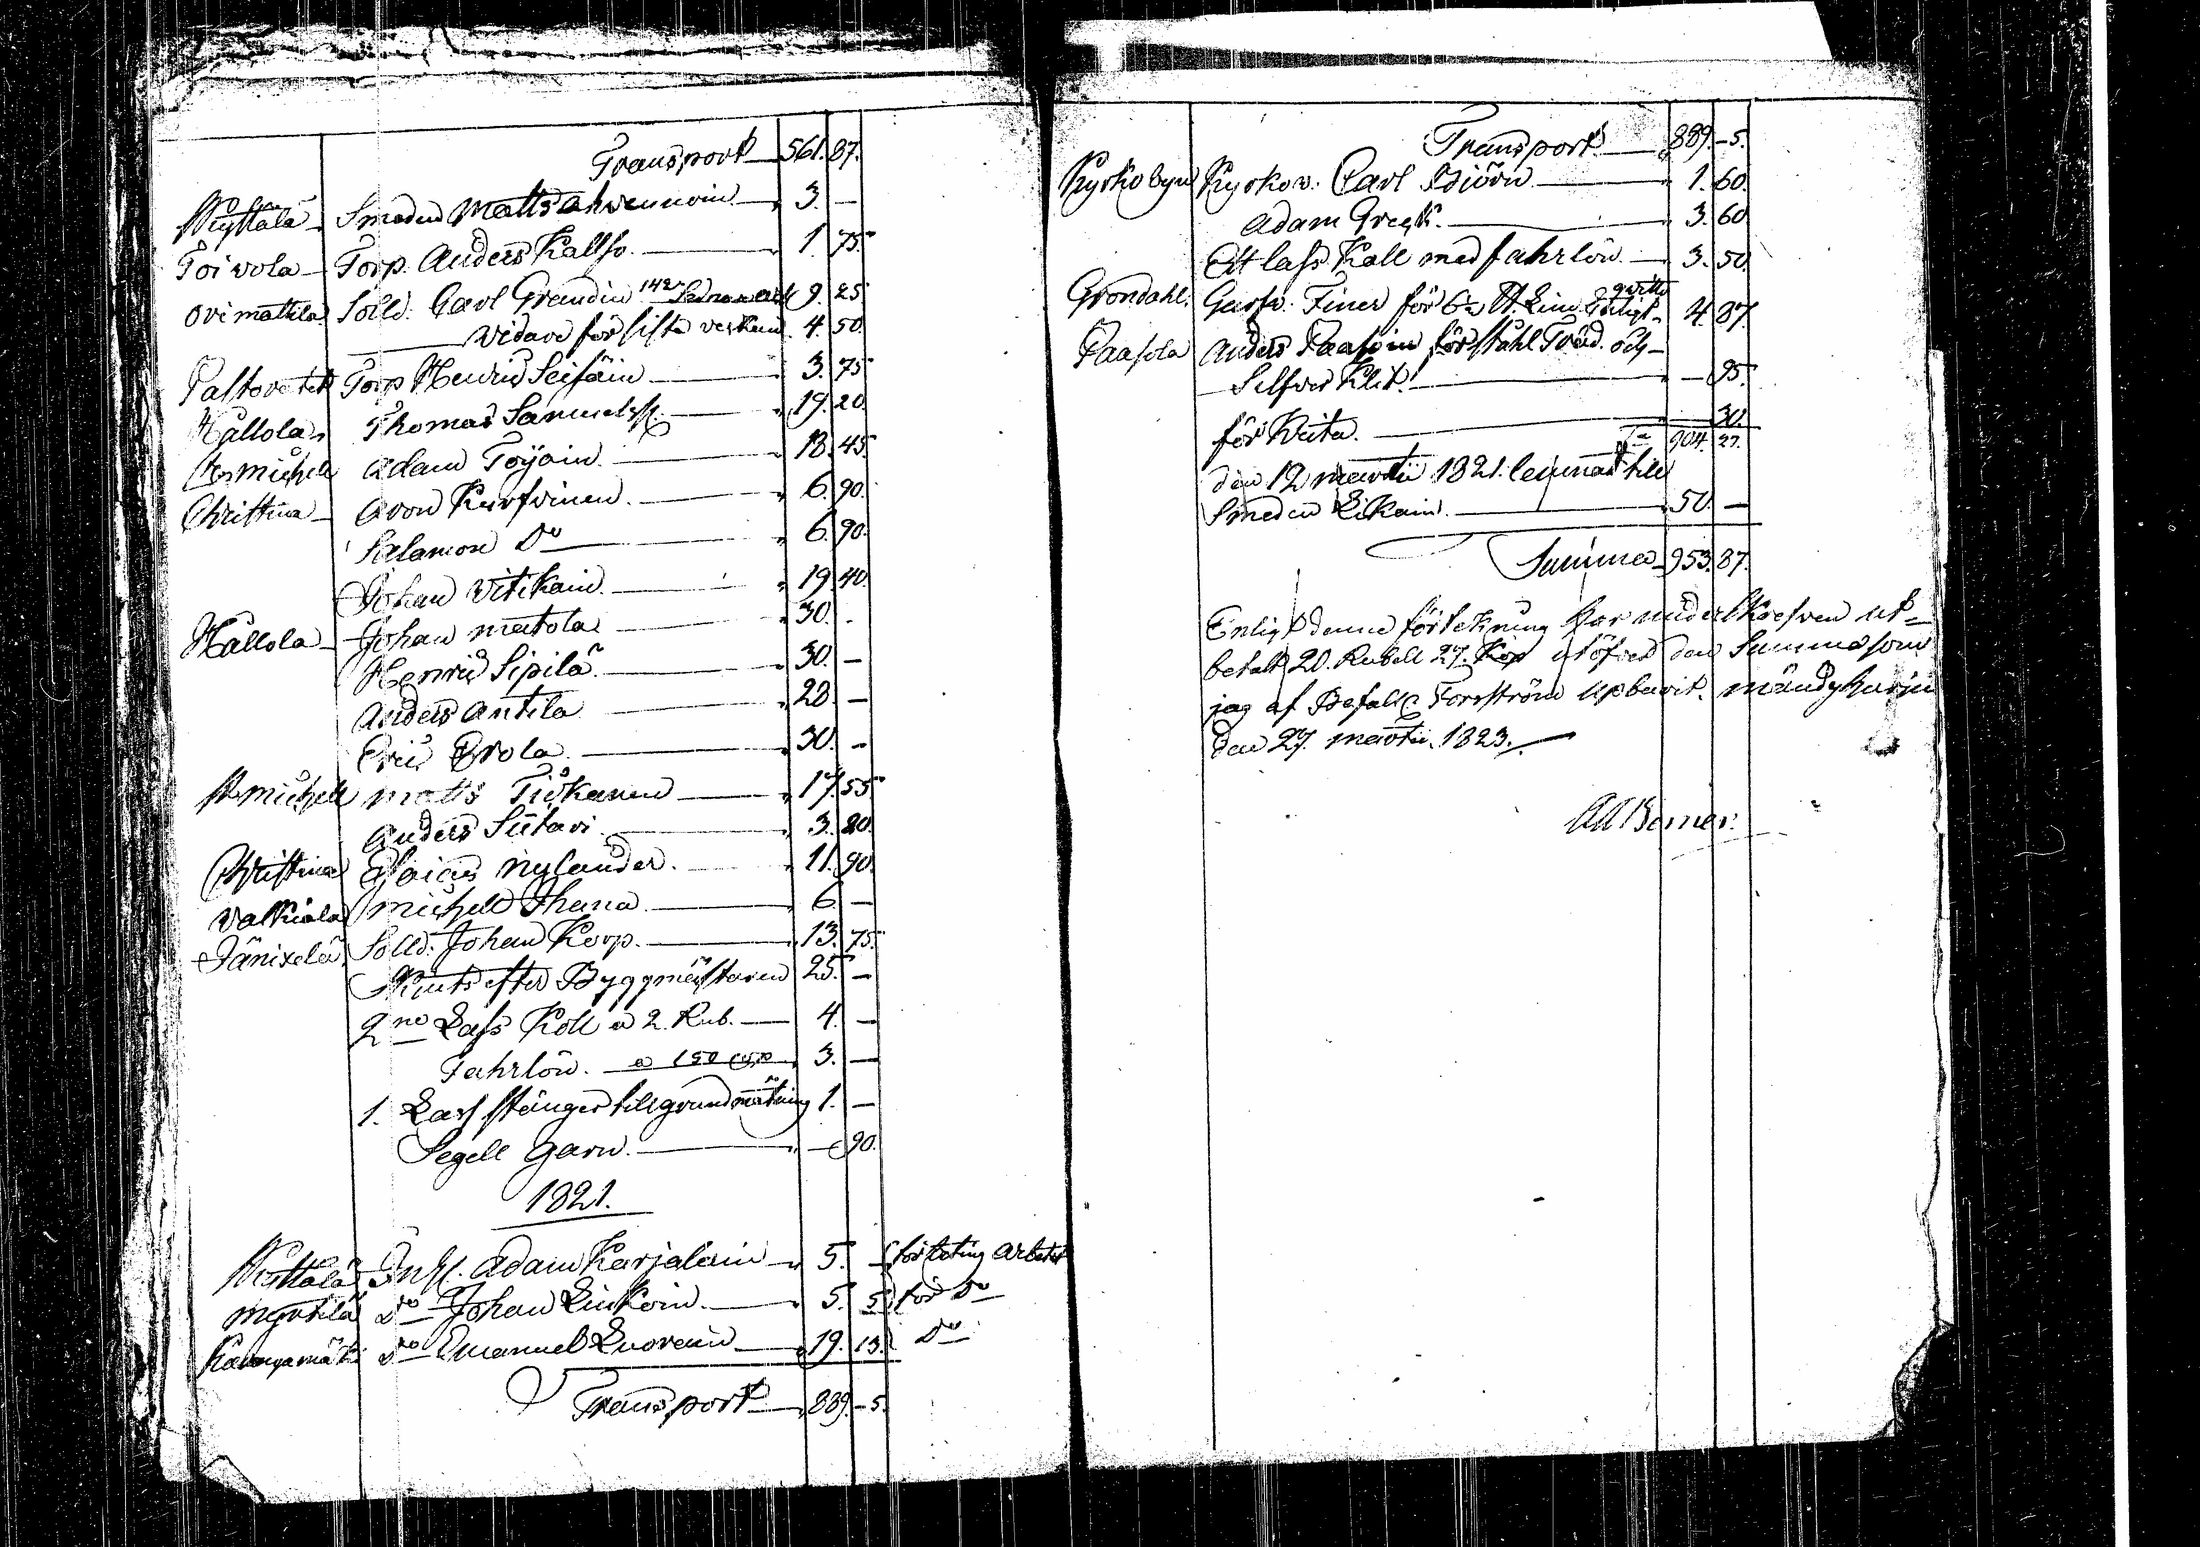 Transport 561. 87.
Nyttälä Smeden Matts Ahvennoin 3. —
Toivola Torp. Anders Kallio 1. 75
Orimattila Solld. Carl Grandin 142 9. 25
Vidare för sista verkan 4. 50.
Torp Henric Seisäin 3. 75
Hållola Thomas Samuelss. 19. 20.
St Michell Adam Töyöin 18. 45
Christina Aron Kurfvinen 6. 90.
Salamon Do 6. 90.
Johan Vitikain 19. 40.
Hållola Johan Matola 30. -
Henric Sipilä 30. —
Anders Antila 28. —
Eric Erola 30. -
St Michell Matts Tiokanen 17. 55
Anders Siitari 3. 80.
Christina Esaias Nylander 11. 90.
Valkiala Michell Ihana 6 —
Jänixelä Solld. Johan Korp. 13. 75.
efter Byggmästaren 25. —
2ne Lass Koll a 2. Rub. 4. —
Fahrlön. a 150 Cop 3. —
1. Lass stänger till grund mätning 1. —
Segell Garn. — 90.
1821.
Nyttälä Inh. Adam Karjalain 5. — för beting arbete
Myrtilä do Johan Linkoin 5. 5. för Do
do Emanuel Luorain 19. 13. Do
Transport 889. - 5.
Transport 889. - 5.
Kyrkobyn Kyrkov. Carl Björn 1. 60.
Adam Greek. 3. 60
Ett lass Kåll med fahrlön 3. 50
Gröndahl. Gust. Finer för 6 ℔ Lim Enligt qvitto 4. 87.
Paasola Anders Paasoin för Ståhl Tråd. och
Silfver Klit. — 95.
för Krita. 30.
904. 27.
den 12 Martii 1821. lemnat till
Smeden Eikain 50. —
Summa 953. 87.
Enligt denna förtekning har underskrefven ut-
betalt 20. Rubell 27. Kop utöfver den Summa som
jag af Befallg Forsström upburit. Mändyharju
den 27. Martii. 1823.